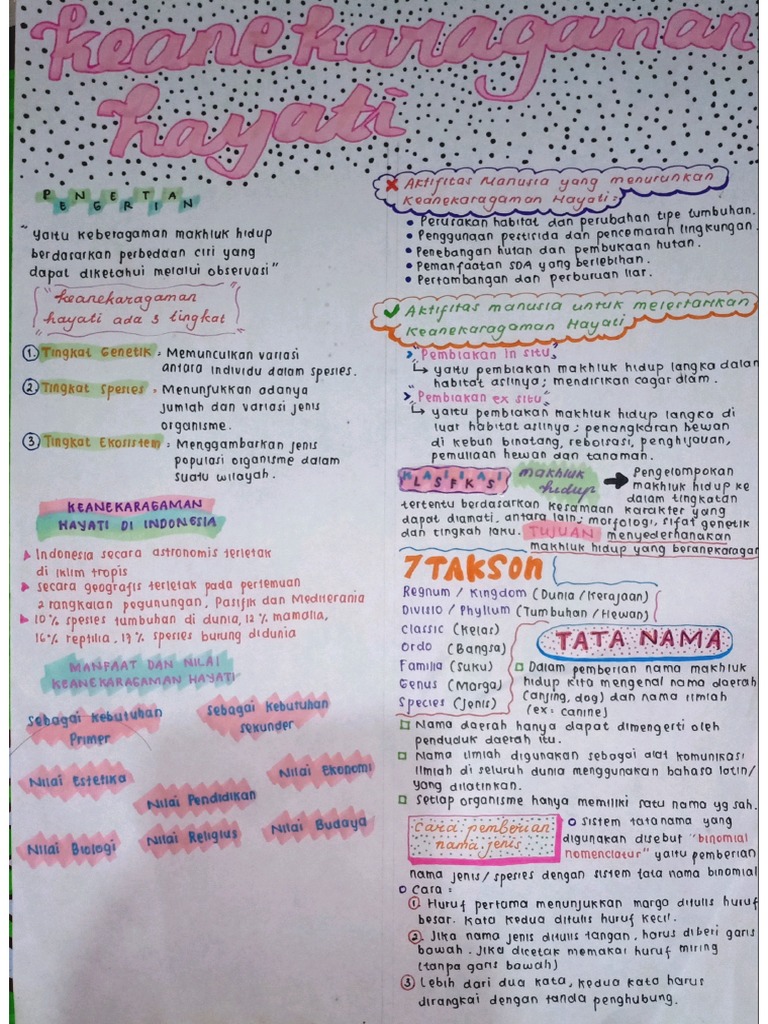 Keanekaragaman
hayati
PENGERTIAN
"yaitu keberagaman makhluk hidup
berdasarkan perbedaan ciri yang
dapat diketahui melalui observasi"
"Keanekaragaman
hayati ada 3 tingkat"
1. Tingkat Genetik : Memunculkan variasi
antara individu dalam spesies.
2. Tingkat Spesies : Menunjukkan adanya
jumlah dan variasi jenis
organisme.
3. Tingkat Ekosistem : Menggambarkan jenis
populasi organisme dalam
suatu wilayah.
KEANEKARAGAMAN
HAYATI DI INDONESIA
Indonesia secara astronomis terletak
di iklim tropis
secara geografis terletak pada pertemuan
2 rangkaian pegunungan, Pasifik dan Mediterania
10% spesies tumbuhan di dunia, 12% mamalia,
16% reptilia, 17% spesies burung didunia
MANFAAT DAN NILAI
KEANEKARAGAMAN HAYATI
Sebagai Kebutuhan
Primer
Sebagai Kebutuhan
Sekunder
Nilai Estetika
Nilai Ekonomi
Nilai Pendidikan
Nilai Biologi
Nilai Religius
Nilai Budaya
Aktifitas Manusia yang menurunkan
Keanekaragaman Hayati :
• Perusakan habitat dan perubahan tipe tumbuhan.
• Penggunaan pestisida dan pencemaran lingkungan.
• Penebangan hutan dan pembukaan hutan.
• Pemanfaatan SDA yang berlebihan.
• Pertambangan dan perburuan liar.
Aktifitas manusia untuk melestarikan
Keanekaragaman Hayati
> "Pembiakan in situ"
↳ yaitu pembiakan makhluk hidup langka dalam
habitat aslinya ; mendirikan cagar dlam.
> "Pembiakan ex situ"
↳ yaitu pembiakan makhluk hidup langka di
luar habitat aslinya ; penangkaran hewan
di kebun binatang, reboisasi, penghijauan,
pemuliaan hewan dan tanaman.
KLASIFIKASI makhluk hidup → Pengelompokan
makhluk hidup ke
dalam tingkatan
tertentu berdasarkan kesamaan karakter yang
dapat diamati, antara lain ; morfologi, sifat genetik
dan tingkah laku. TUJUAN menyederhanakan
makhluk hidup yang beranekaragam
7 TAKSON
Regnum / Kingdom (Dunia/Kerajaan)
Divisio / Phyllum (Tumbuhan/Hewan)
Classic (Kelas)
Ordo (Bangsa)
Familia (Suku)
Genus (Marga)
Species (Jenis)
TATA NAMA
Dalam pemberian nama makhluk
hidup kita mengenal nama daerah
(anjing, dog) dan nama ilmiah
(ex: canine)
Nama daerah hanya dapat dimengerti oleh
penduduk daerah itu.
Nama ilmiah digunakan sebagai alat komunikasi
ilmiah di seluruh dunia menggunakan bahasa latin/
yang dilatinkan.
Setiap organisme hanya memiliki satu nama yg sah.
Cara pemberian
nama jenis
Sistem tatanama yang
digunakan disebut "binomial
nomenclatur" yaitu pemberian
nama jenis/spesies dengan sistem tata nama binomial
Cara :
1. Huruf pertama menunjukkan marga ditulis huruf
besar. Kata kedua ditulis huruf kecil.
2. Jika nama jenis ditulis tangan, harus diberi garis
bawah. Jika dicetak memakai huruf miring
(tanpa garis bawah)
3. Lebih dari dua kata, kedua kata harus
dirangkai dengan tanda penghubung.